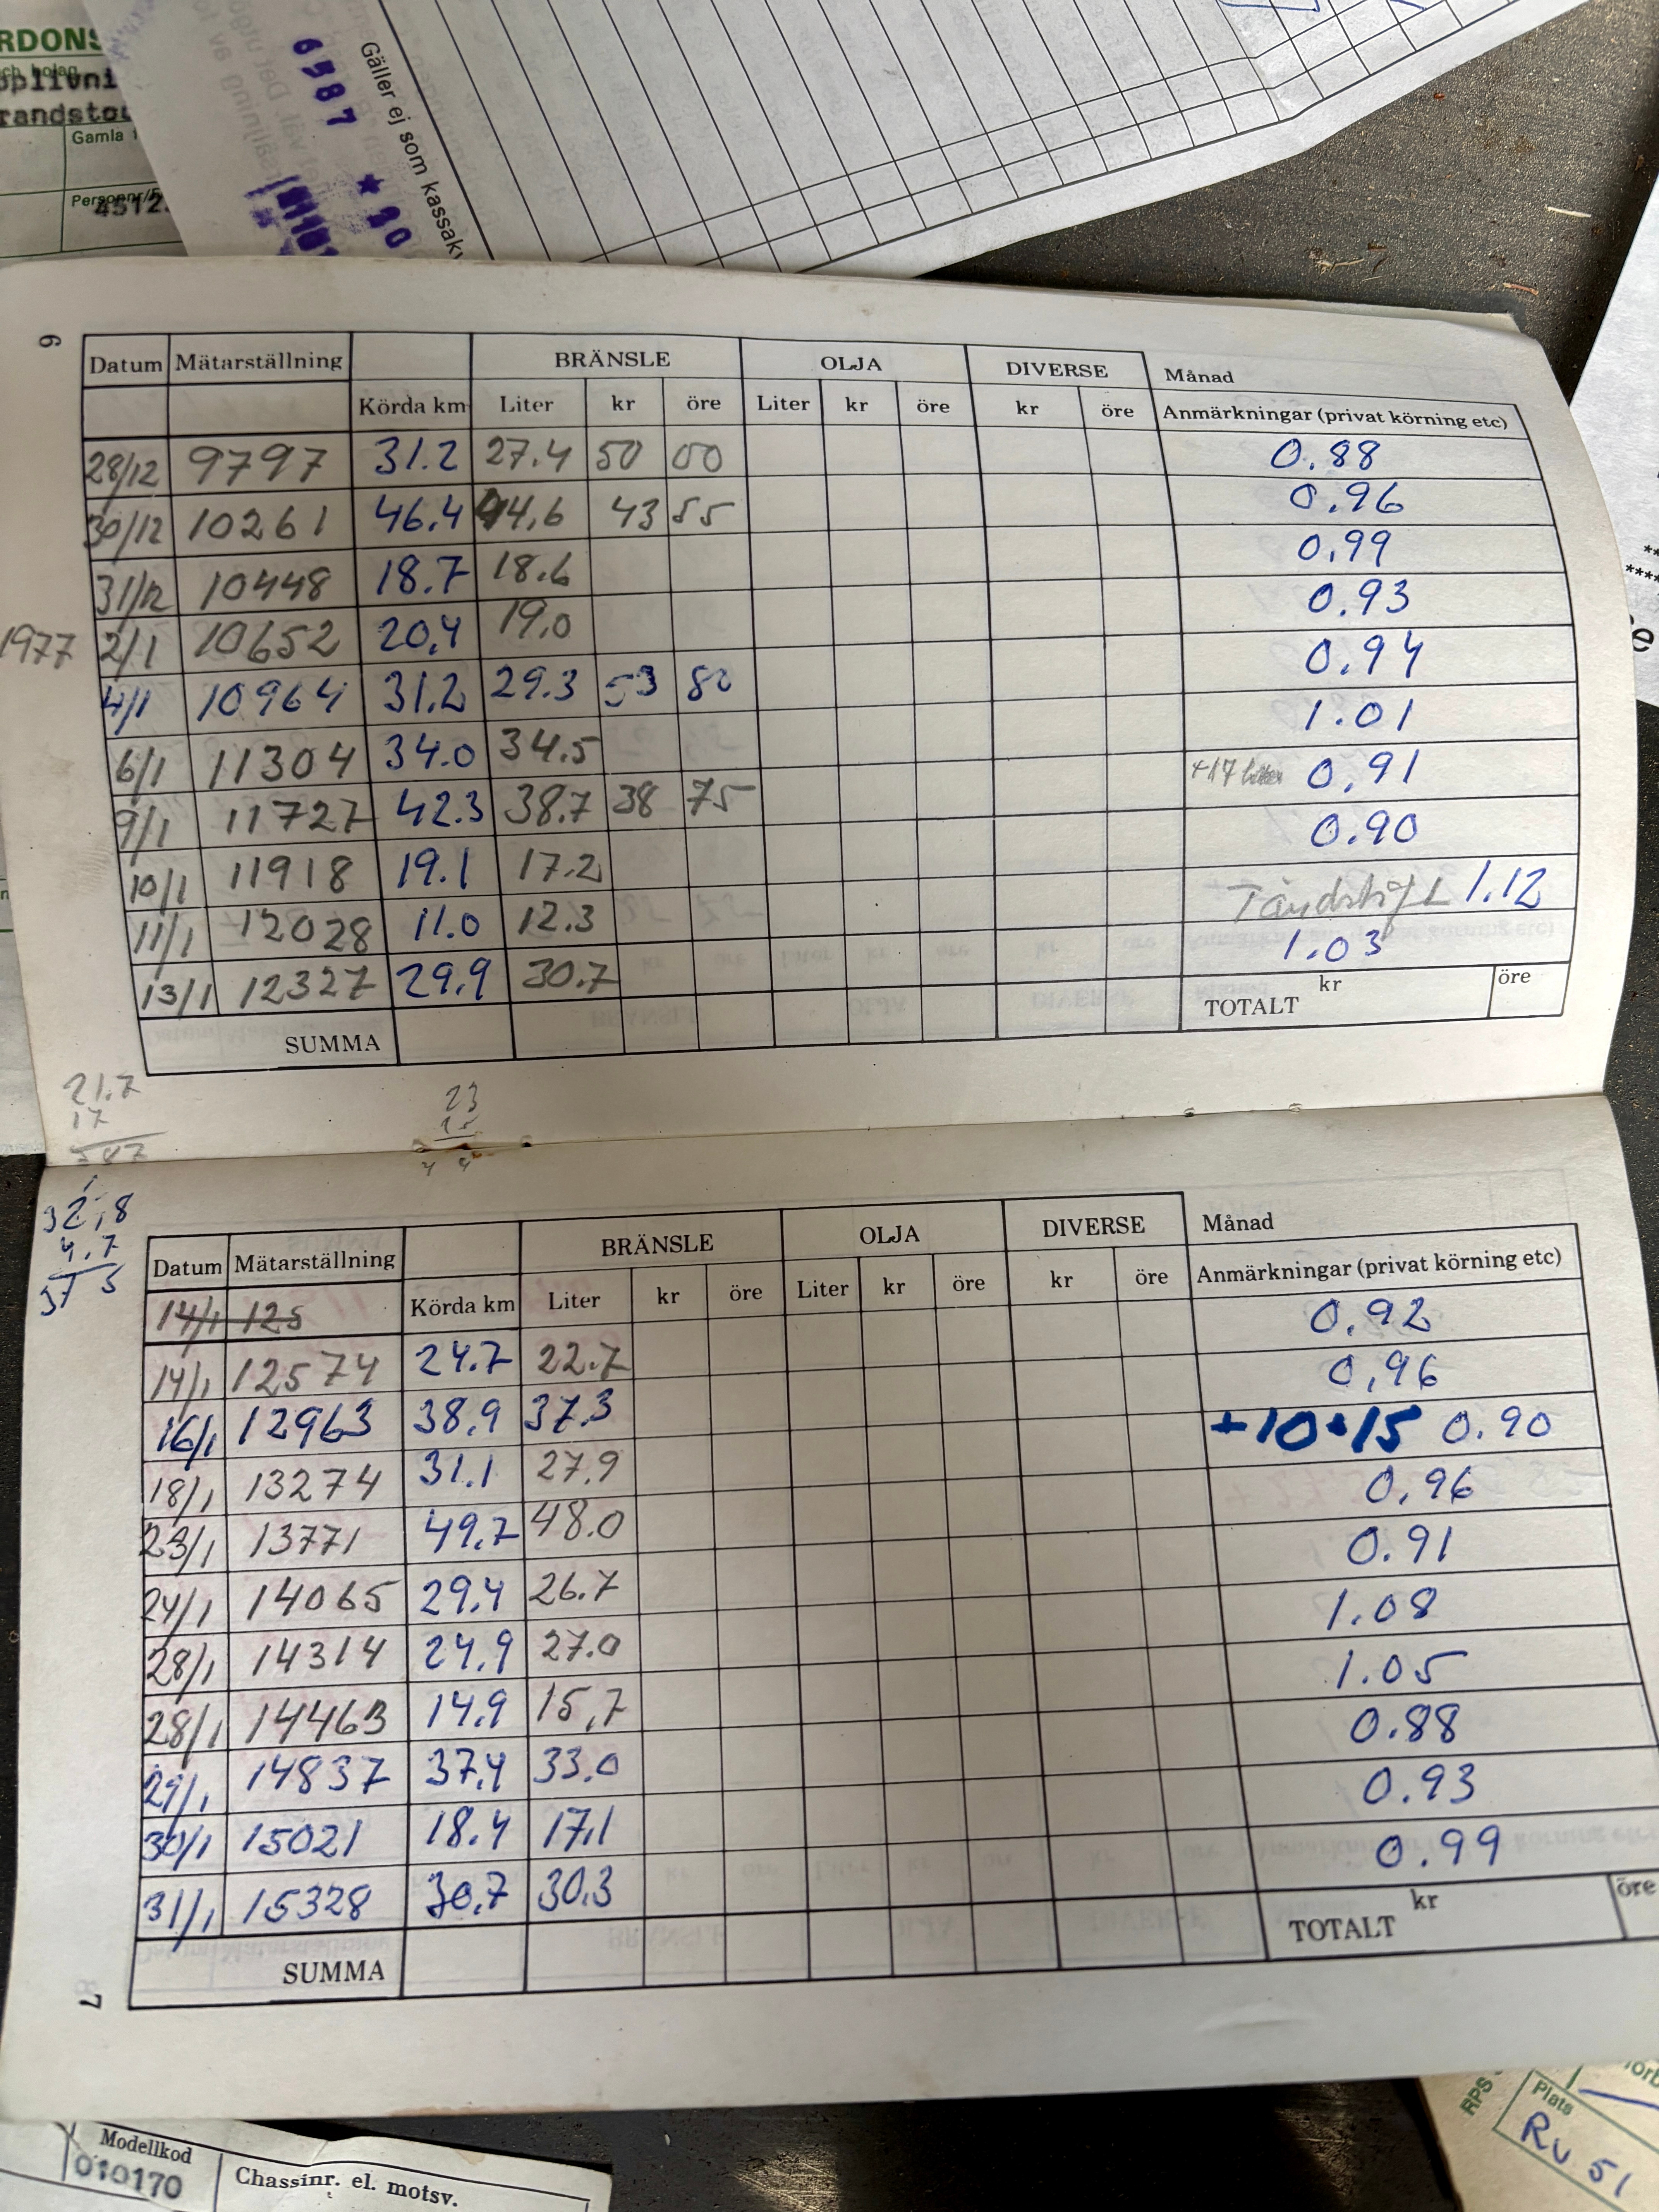 RDONS
Gamla
Personnr/
4512
Gäller ej som kassakv
6
Datum Mätarställning BRÄNSLE OLJA DIVERSE Månad
Körda km Liter kr öre Liter kr öre kr öre Anmärkningar (privat körning etc)
28/12 9797 31.2 27.4 50 00 0.88
30/12 10261 46.4 44.6 43 55 0.96
31/12 10448 18.7 18.6 0.99
1977 2/1 10652 20.4 19.0 0.93
4/1 10964 31.2 29.3 53 80 0.94
6/1 11304 34.0 34.5 1.01
9/1 11727 42.3 38.7 38 75 +17 liter 0.91
10/1 11918 19.1 17.2 0.90
11/1 12028 11.0 12.3 Tändstift 1.12
13/1 12327 29.9 30.7 1.03
SUMMA TOTALT kr öre
21.7
17
23
32,8
4.7
37 5
Datum Mätarställning BRÄNSLE OLJA DIVERSE Månad
14/1 125 Körda km Liter kr öre Liter kr öre kr öre Anmärkningar (privat körning etc)
14/1 12574 24.7 22.7 0.92
16/1 12963 38.9 37.3 0,96
18/1 13274 31.1 27.9 +10+15 0.90
23/1 13771 49.7 48.0 0,96
24/1 14065 29.4 26.7 0.91
28/1 14314 24.9 27.0 1.08
28/1 14463 14.9 15,7 1.05
29/1 14837 37.4 33.0 0.88
30/1 15021 18.4 17.1 0.93
31/1 15328 30,7 30.3 0.99
SUMMA TOTALT kr öre
7
Modellkod
010170
Chassinr. el. motsv.
RPS
Plats
RV 51